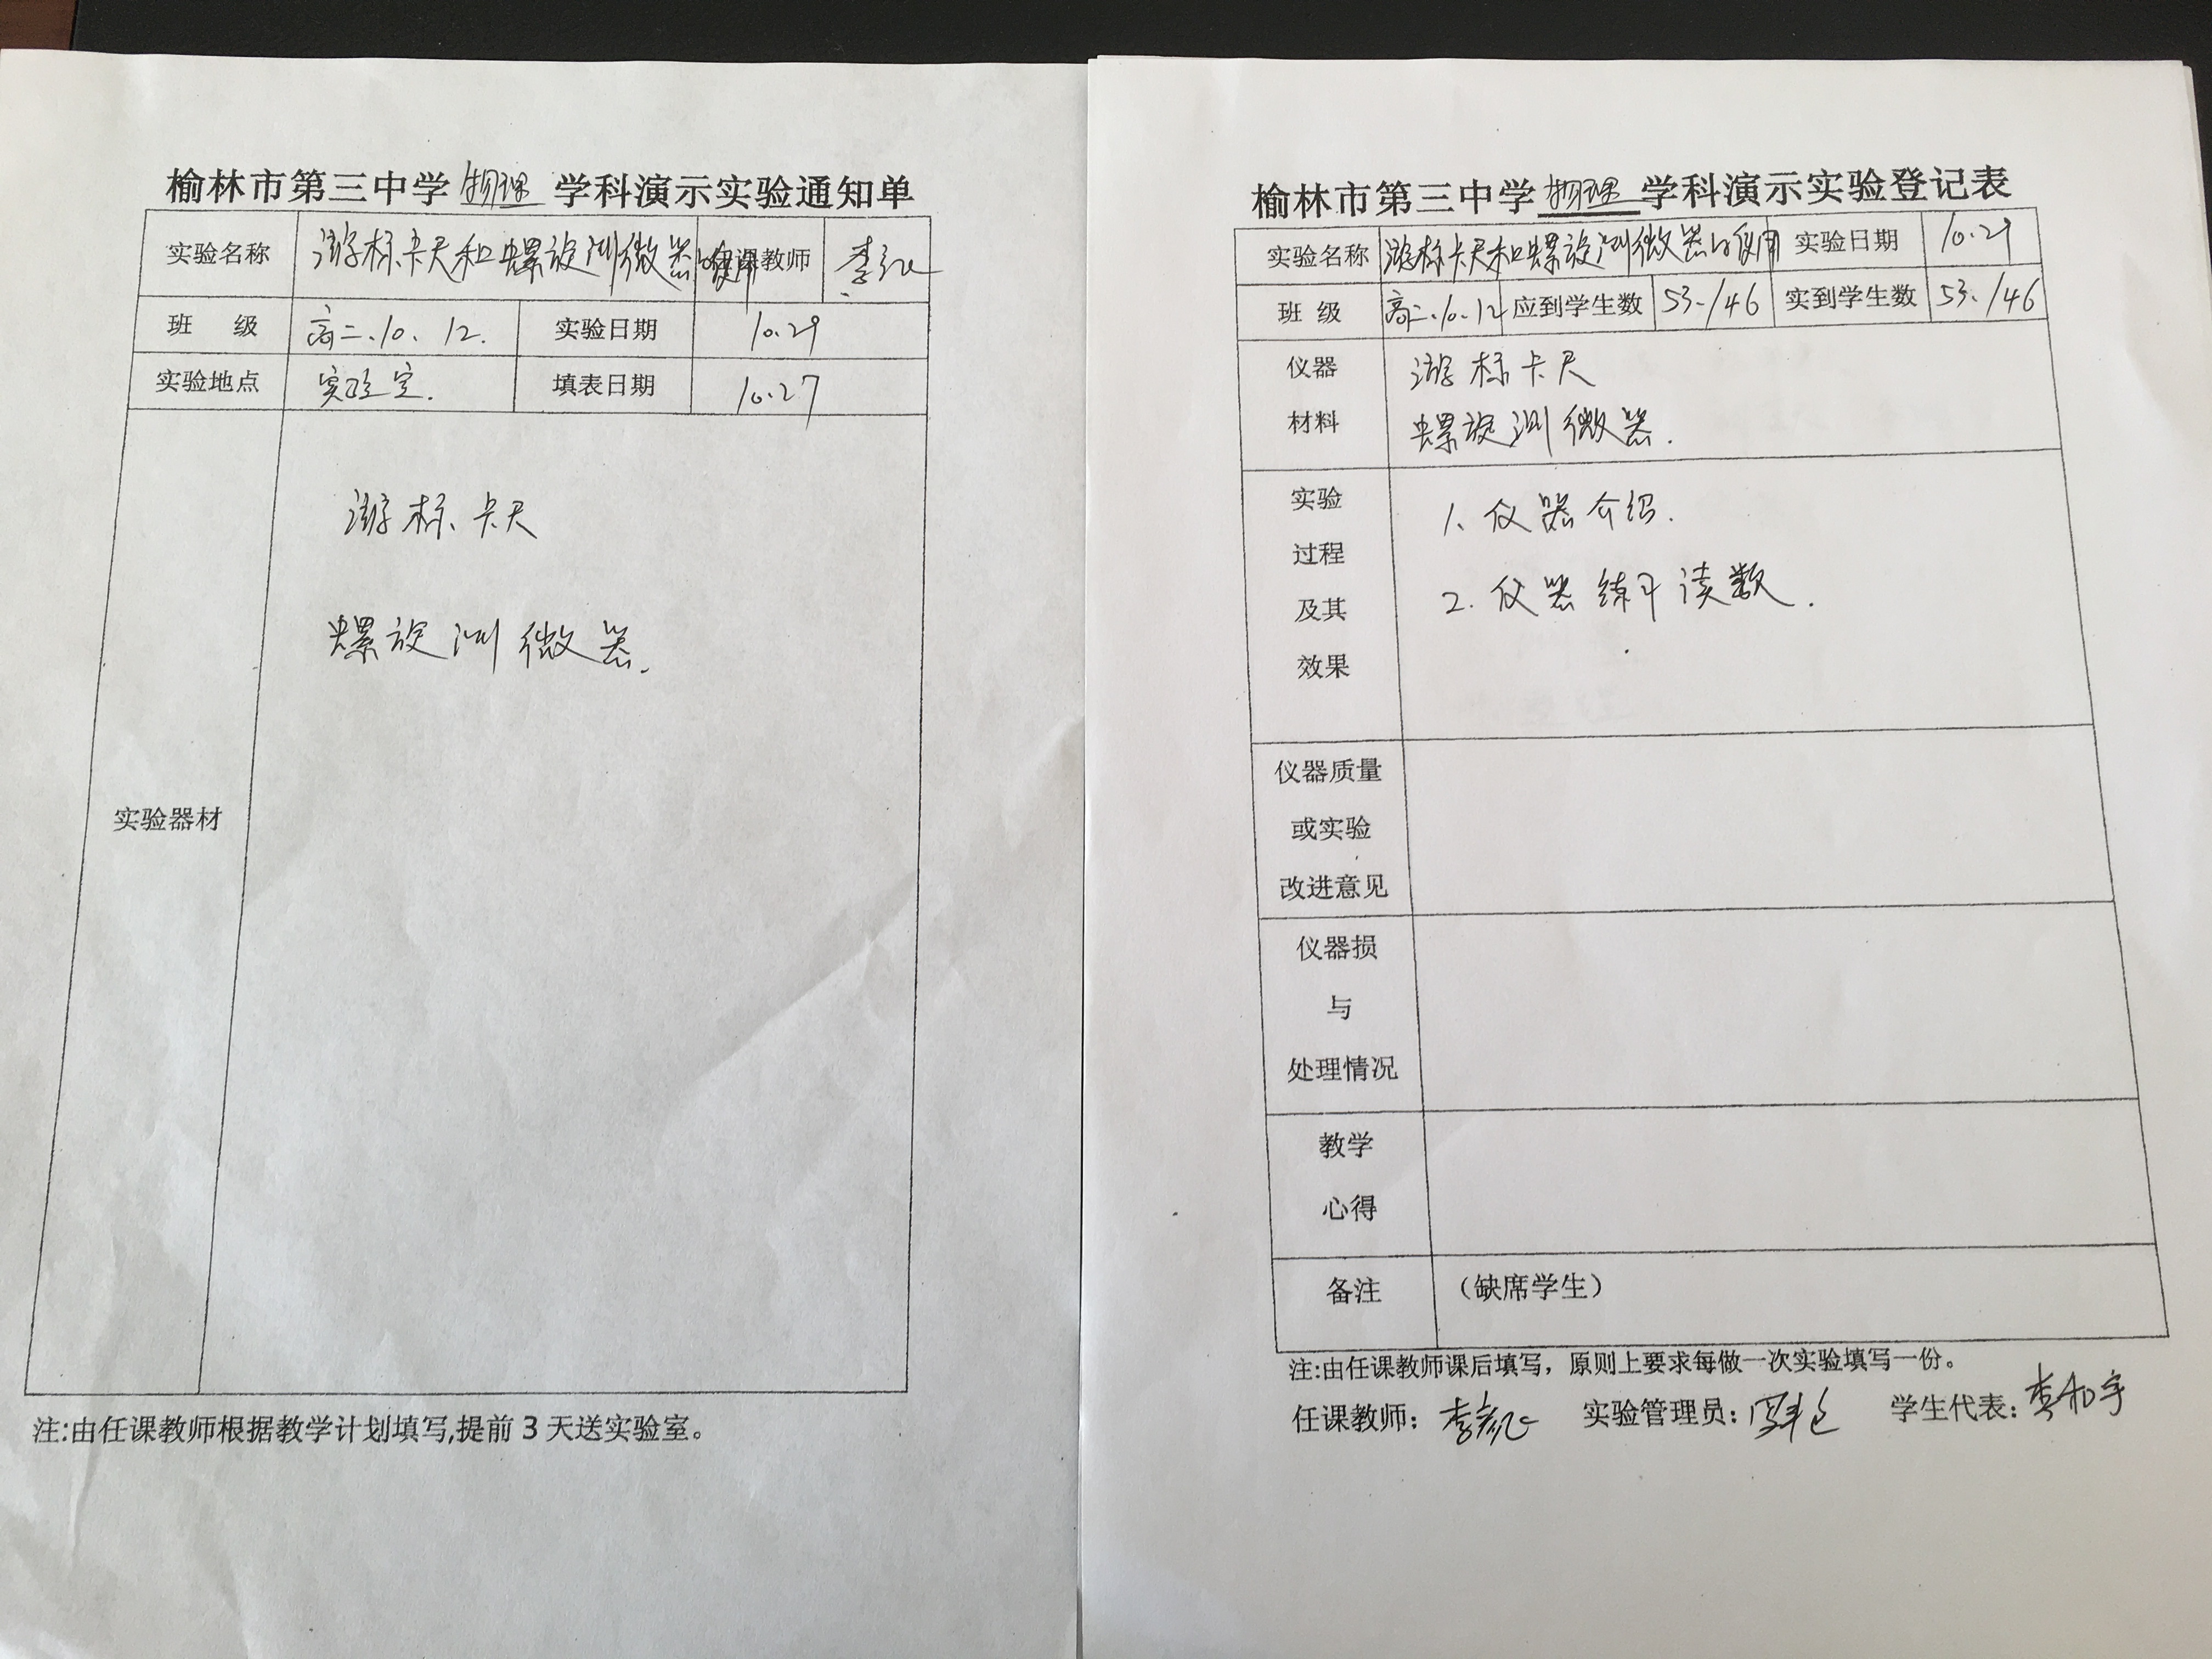 榆林市第三中学 物理 学科演示实验通知单
实验名称 游标卡尺和螺旋测微器的使用 任课教师 李
班 级 高二.10、12. 实验日期 10.29
实验地点 实验室. 填表日期 10.27
实验器材
游标卡尺
螺旋测微器.
注:由任课教师根据教学计划填写,提前 3 天送实验室。
榆林市第三中学 物理 学科演示实验登记表
实验名称 游标卡尺和螺旋测微器的使用 实验日期 10.29
班 级 高二.10.12 应到学生数 53./46 实到学生数 53./46
仪器
材料
游标卡尺
螺旋测微器.
实验
过程
及其
效果
1、仪器介绍.
2. 仪器练习读数.
仪器质量
或实验
改进意见
仪器损
与
处理情况
教学
心得
备注 （缺席学生）
注:由任课教师课后填写，原则上要求每做一次实验填写一份。
任课教师： 李 实验管理员： 学生代表： 李和宇